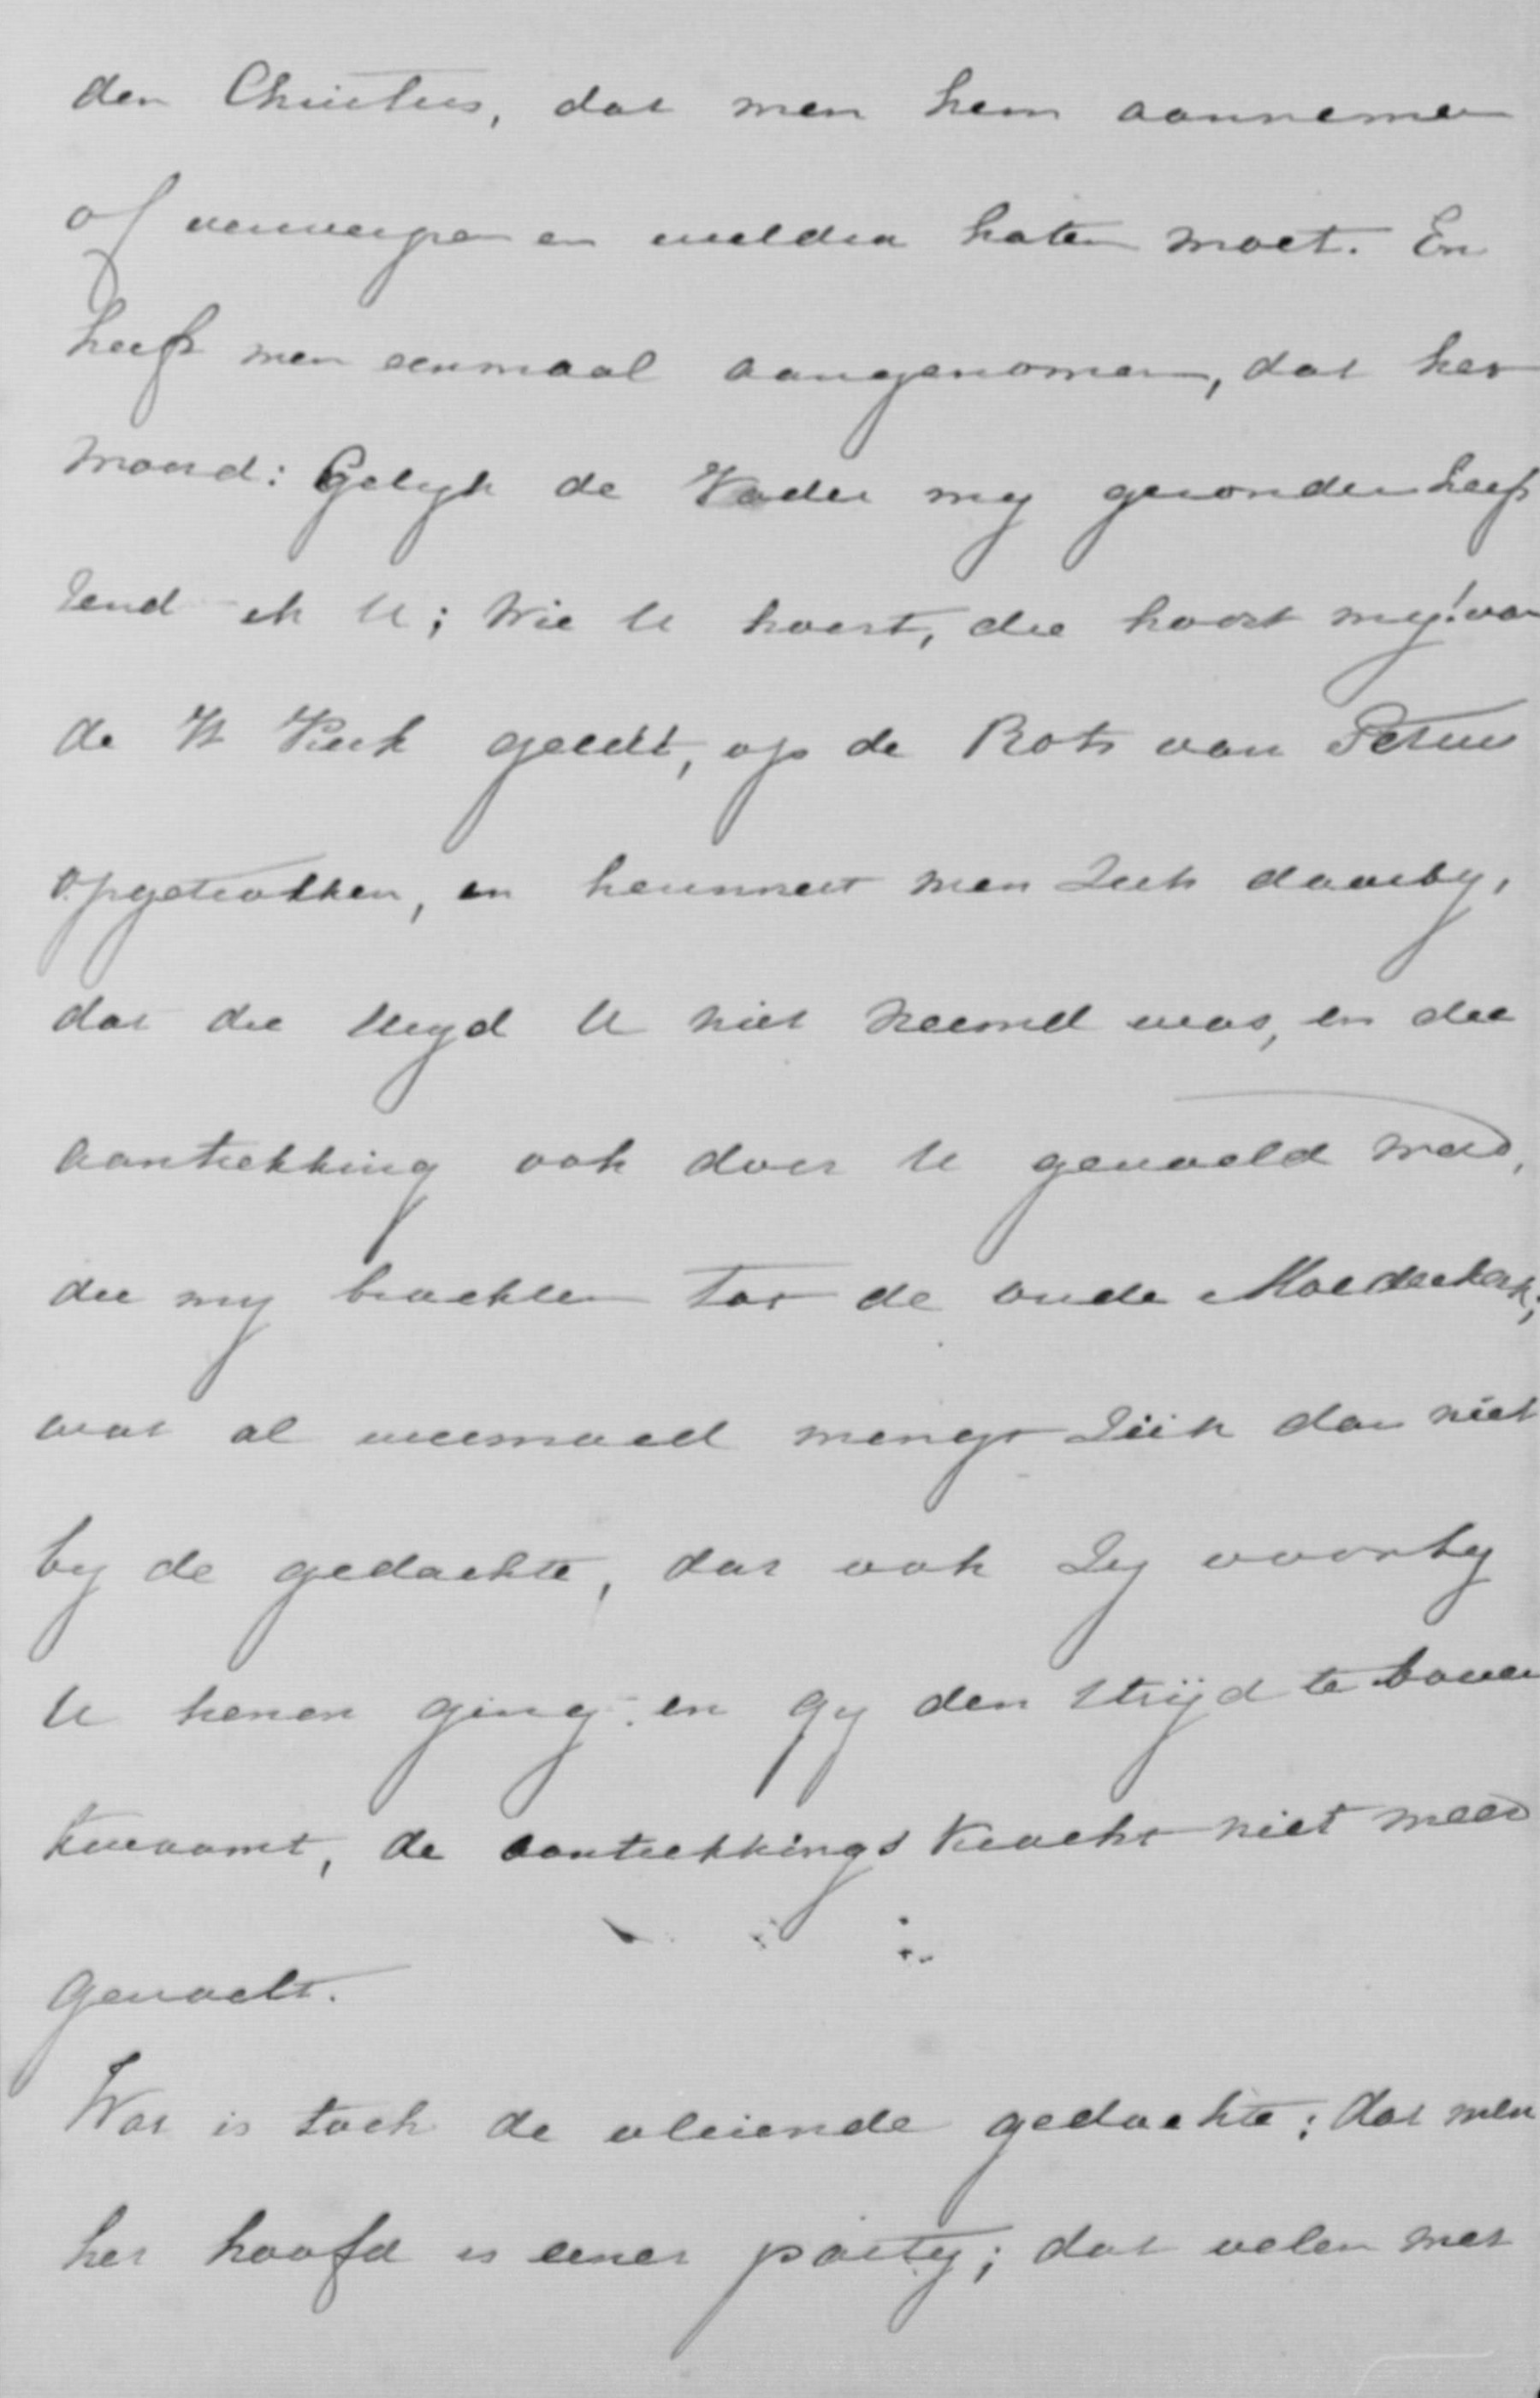 den Christus, dat men hem aannemen
of verwerpen en weldra haten moet. En
heeft men eenmaal aangenomen, dat het
woord: Gelyk de Vader my gezonden heeft
zend ik U; Wie U hoort, die hoort my! van
de H Kerk geldt, op de Rots van Petrus
opgetrokken, en herinnert men zich daarby,
dat die stryd U niet vreemd was, en die
aantrekking ook door U gevoeld werd,
die my brachten tot de oude Moederkerk;
wat al weemoed mengt zich dan niet
by de gedachte, dat ook zy voorby
U henen ging en gy den strijd te boven
kwaamt, de aantrekkings kracht niet meer
gevoelt.
Wat is toch de vleiende gedachte; dat men
het hoofd is eener party; dat velen met